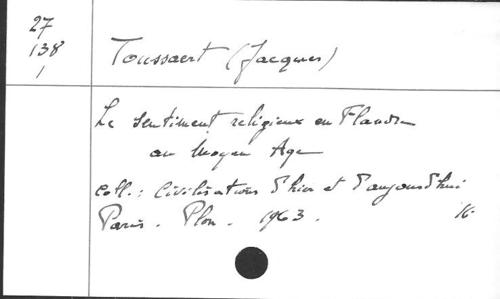 27
138
1
Toussaert (Jacques)
Le sentiment religieux en Flandre
au Moyen Age
Coll.: Civilisations d'hier et d'aujourd'hui
Paris. Plon. 1963. 16-